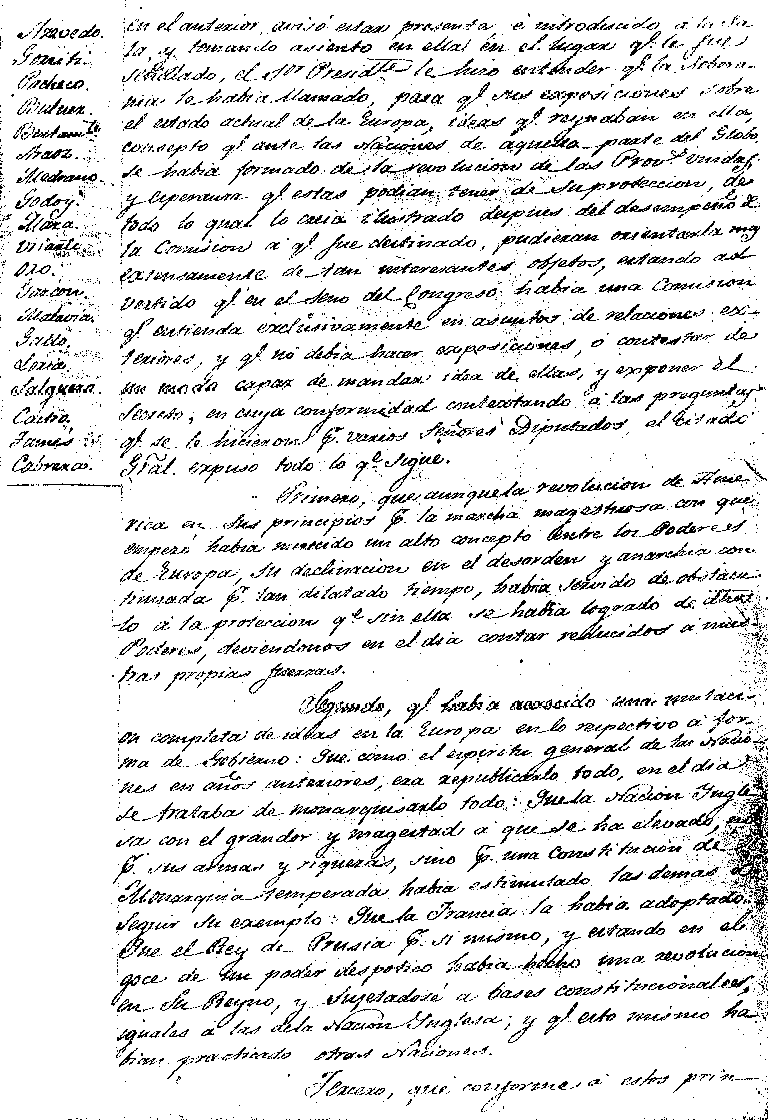 Acevedo.
Gorriti.
Pacheco.
Bulnes.
Bustam.te
Araoz.
Medrano.
Godoy.
Maza.
Uriarte.
Oro.
Gascon.
Malavia.
Gallo.
Loria.
Salguero.
Castro.
Cabrera.
en el anterior, avisó estar presente é introducido á la Sa
la, y tomando asiento en ella en el lugar q.e le fue
señalado, el Sor Presid.te le hizo entender q.e la Sobera
nia le habia llamado, para q.e sus exposiciones sobre
el estado actual de la Europa, ideas q.e reynaban en ella,
concepto q.e ante las Naciones de aquella parte del Globo
se habia formado de la revolucion de las Prov.s unidas,
y esperanza q.e estas podian tener de su proteccion, de
todo lo qual lo creia ilustrado despues del desempeño de
la Comision á q.e fue destinado, pudieran orientarla mas
extensamente de tan interesantes objetos, estando ad
vertido q.e en el seno del Congreso habia una Comision
q.e entienda exclusivamente en asuntos de relaciones ex-
teriores, y q.e no debia hacer exposiciones, ó contestar de
un modo capaz de mandar idea de ellas, y exponer el
secreto, en cuya conformidad contextando á las preguntas
q.e se le hicieron p.r varios Señores Diputados, el citado
Gral. expuso todo lo q.e sigue.
Primero, que aunque la revolucion de Ame
rica en sus principios p.r la marcha magestuosa con que
empezó habia merecido un alto concepto entre los Poderes
de Europa, su declinacion en el desorden y anarchia con
tinuada p.r tan dilatado tiempo, habia servido de obstacu
lo á la proteccion q.e sin ella se habria logrado de
Poderes, deviendonos en el dia contar reducidos á nues
tras propias fuerzas.
Segundo, q.e habia acaecido una mutaci-
on completa de ideas en la Europa en lo respectivo á for
ma de Gobierno: Que como el espiritu general de las Nacio
nes en años anteriores, era republicarlo todo, en el dia
se trataba de monarquisarlo todo: Que la Nacion Ingle
sa con el grandor y magestad á que se ha elevado, no
p.r sus armas y riquezas, sino p.r una Constitucion de
Monarquia temperada habia estimulado las demas á
seguir su exemplo: Que la Francia la habia adoptado.
Que el Rey de Prusia p.r si mismo, y estando en el
goce de un poder despotico habia hecho una revolucion
en su Reyno, y sujetadose á bases constitucionales,
iguales á las dela Nacion Inglesa; y q.e esto mismo ha
bian practicado otras Naciones.
Tercero, que conforme á estos prin-